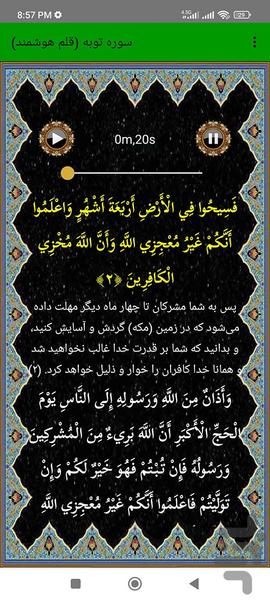 8:57 PM
سوره توبه (قلم هوشمند)
0m,20s
فَسِيحُوا فِي الْأَرْضِ أَرْبَعَةَ أَشْهُرٍ وَاعْلَمُوا
أَنَّكُمْ غَيْرُ مُعْجِزِي اللَّهِ وَأَنَّ اللَّهَ مُخْزِي
الْكَافِرِينَ ﴿۲﴾
پس به شما مشرکان تا چهار ماه دیگر مهلت داده
می‌شود که در زمین (مکه) گردش و آسایش کنید،
و بدانید که شما بر قدرت خدا غالب نخواهید شد
و همانا خدا کافران را خوار و ذلیل خواهد کرد. (۲)
وَأَذَانٌ مِنَ اللَّهِ وَرَسُولِهِ إِلَى النَّاسِ يَوْمَ
الْحَجِّ الْأَكْبَرِ أَنَّ اللَّهَ بَرِيءٌ مِنَ الْمُشْرِكِينَ
وَرَسُولُهُ فَإِنْ تُبْتُمْ فَهُوَ خَيْرٌ لَكُمْ وَإِنْ
تَوَلَّيْتُمْ فَاعْلَمُوا أَنَّكُمْ غَيْرُ مُعْجِزِي اللَّهِ